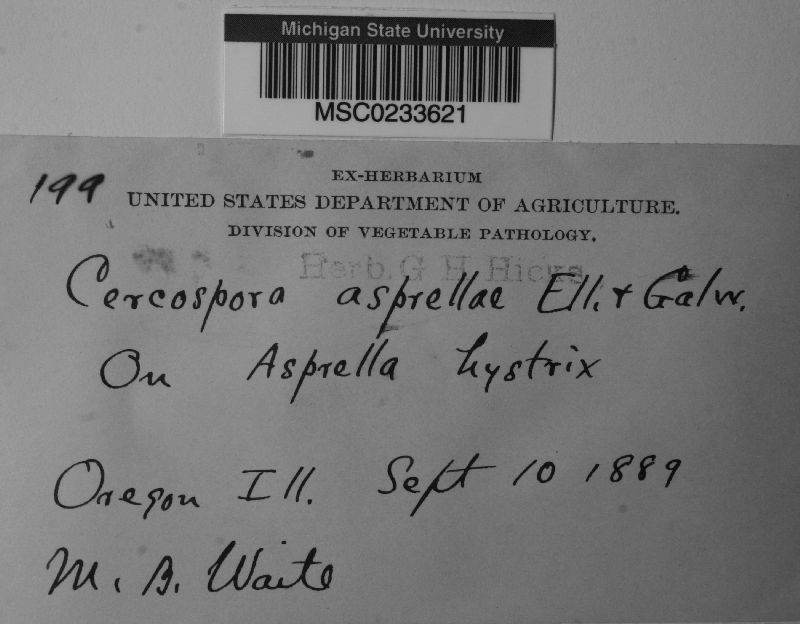 Michigan State University
MSC0233621
199
EX-HERBARIUM
UNITED STATES DEPARTMENT OF AGRICULTURE.
DIVISION OF VEGETABLE PATHOLOGY.
Herb. G H Hicks
Cercospora asprellae Ell. & Galw.
On Asprella hystrix
Oregon Ill. Sept 10 1889
M. B. Waite